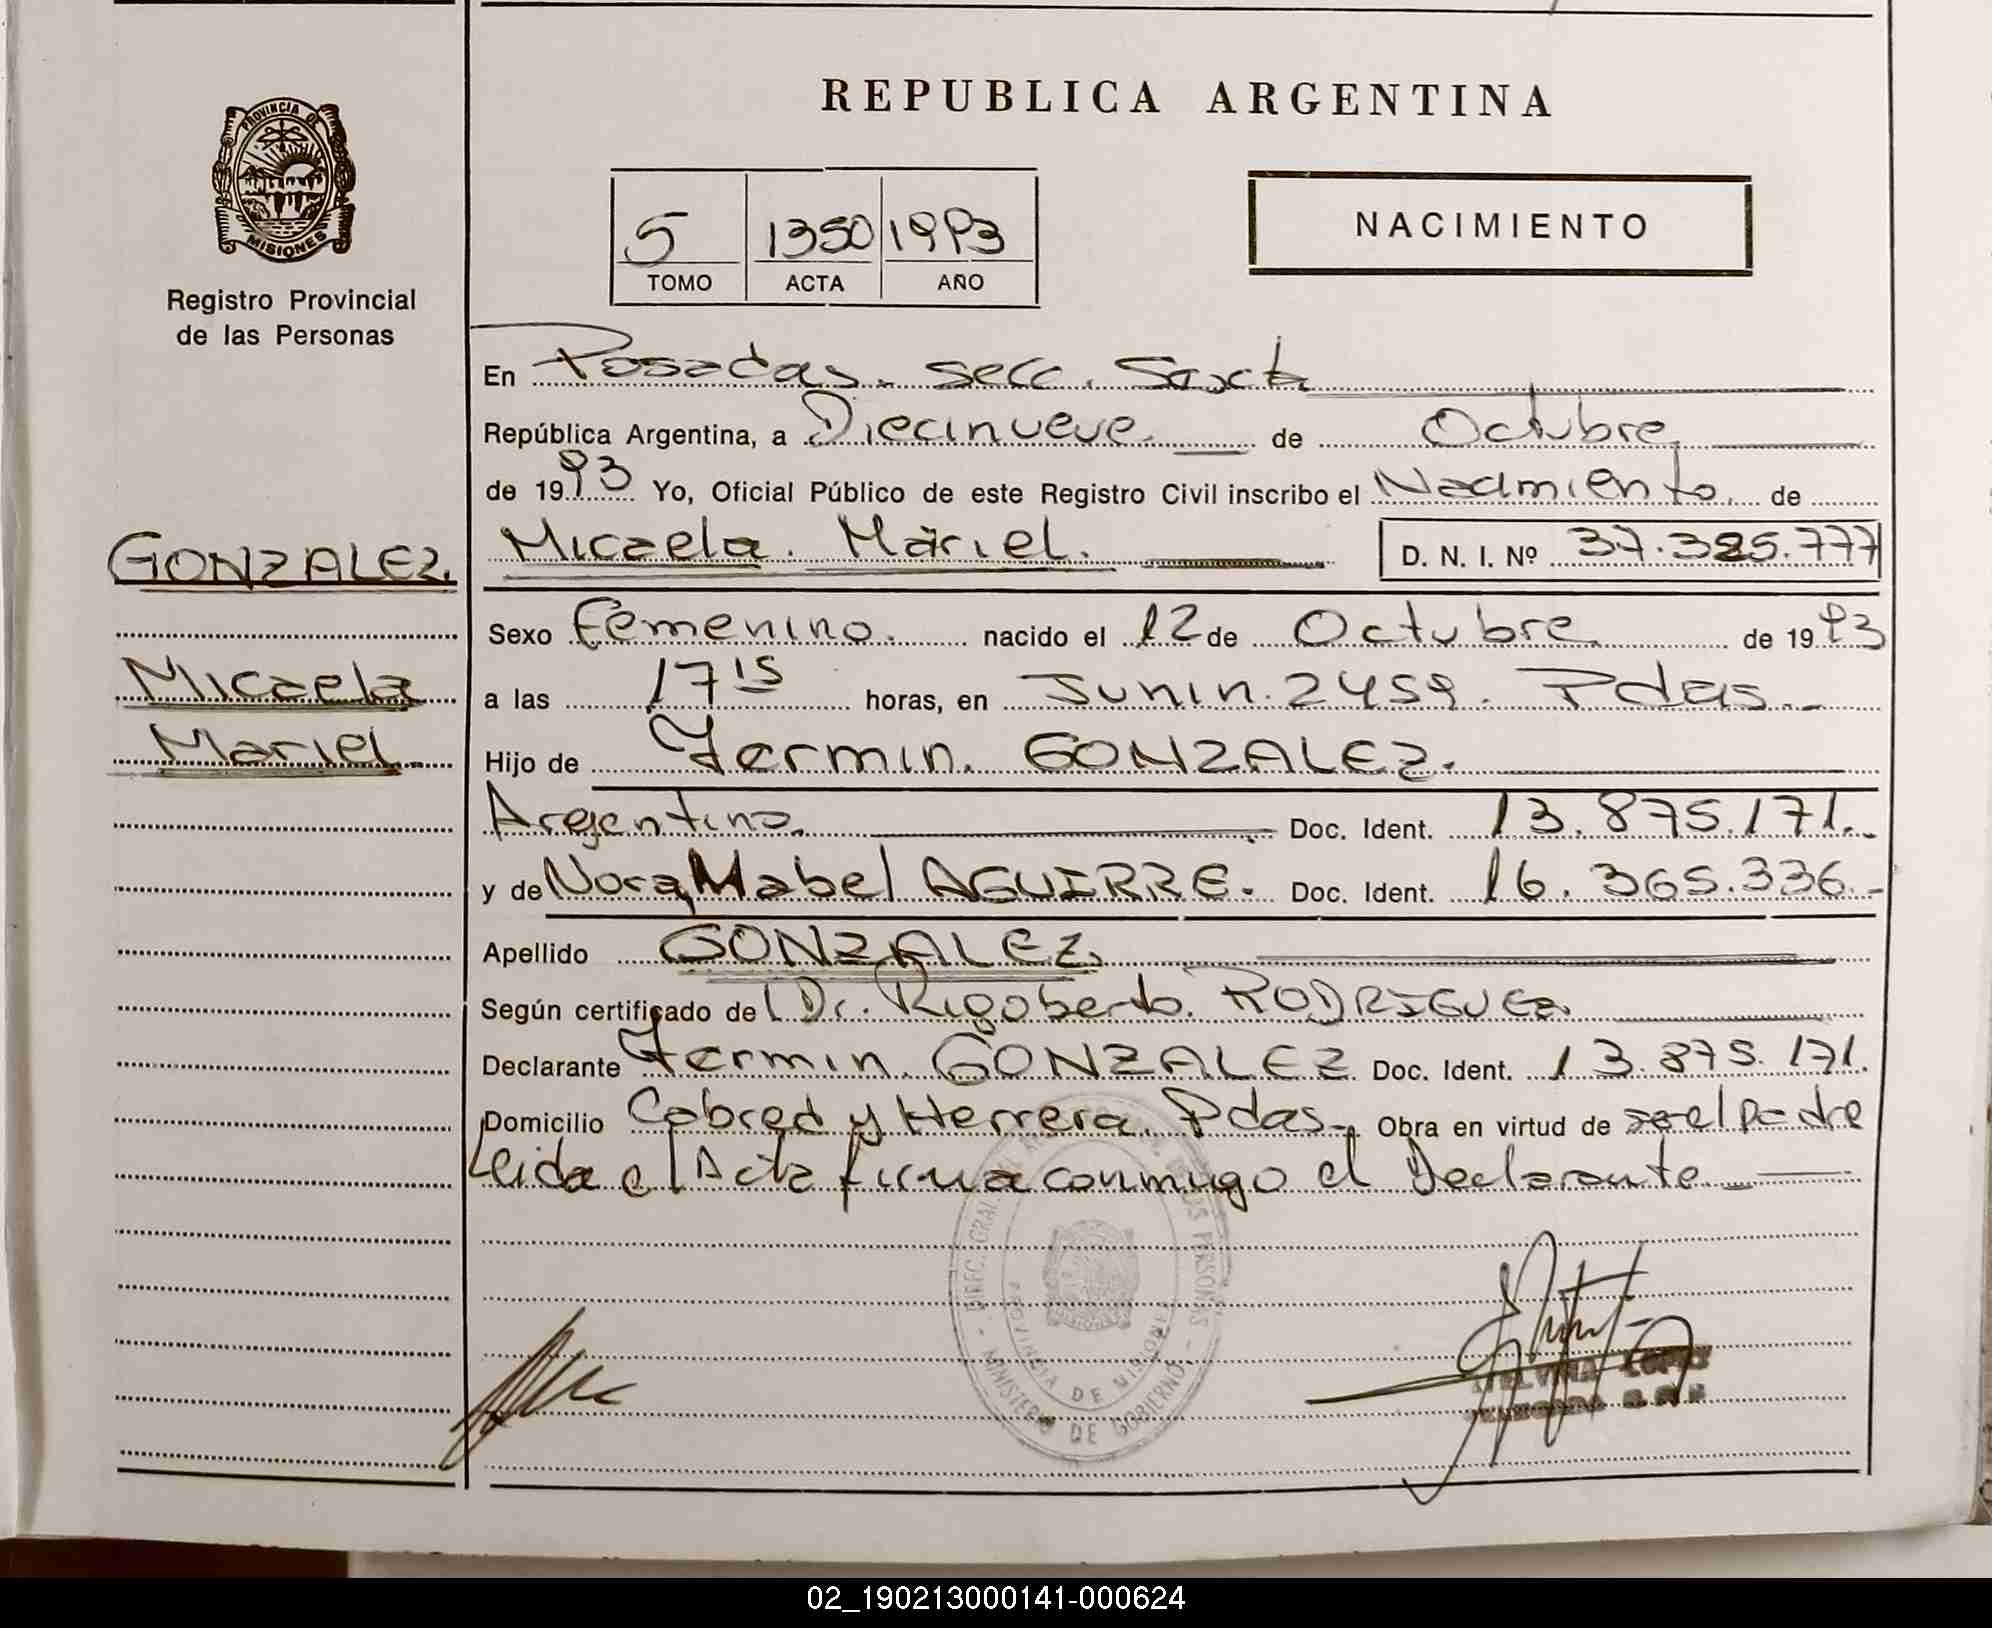 REPUBLICA ARGENTINA
PROVINCIA DE
MISIONES
Registro Provincial
de las Personas
5 1350 1993
TOMO ACTA AÑO
NACIMIENTO
En Posadas. secc. Sexta
República Argentina, a Diecinueve. de Octubre
de 1993 Yo, Oficial Público de este Registro Civil inscribo el Nacimiento. de
GONZALEZ.
Micaela
Mariel.
Micaela. Mariel. D. N. I. Nº 37.325.777
Sexo Femenino. nacido el 12 de Octubre de 1993
a las 17 15 horas, en Junin. 2459. Pdas.
Hijo de Fermin. GONZALEZ.
Argentino. Doc. Ident. 13.875.171.
y de Nora Mabel AGUIRRE. Doc. Ident. 16.365.336.
Apellido GONZALEZ.
Según certificado de Dr. Rigoberto. RODRIGUEZ.
Declarante Fermin. GONZALEZ Doc. Ident. 13.875.171.
Domicilio Cabred y Herrera. Pdas. Obra en virtud de ser el padre
Leida el Acta firma conmigo el Declarante.
DIREC. GRAL. PERSONAS
PROVINCIA DE MISIONES
MINISTERIO DE GOBIERNO
LOPEZ
02_190213000141-000624